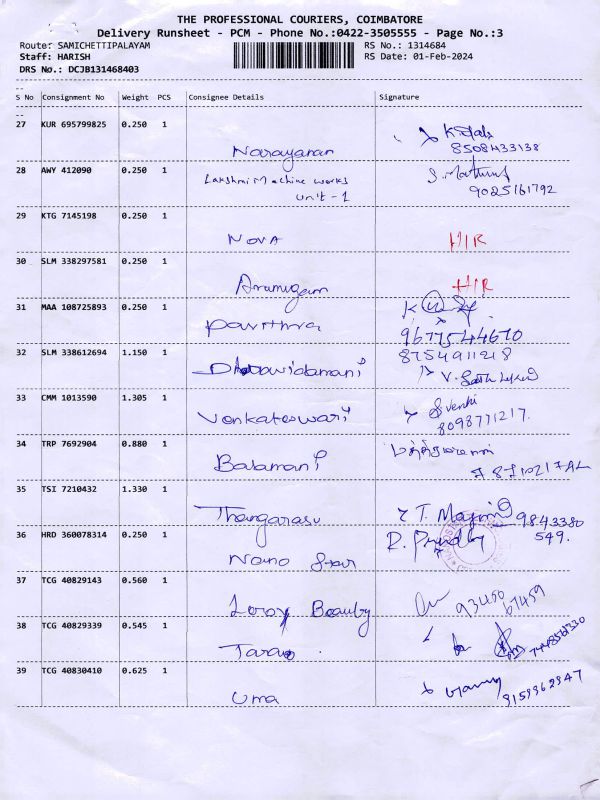 THE PROFESSIONAL COURIERS, COIMBATORE
Delivery Runsheet - PCM - Phone No.:0422-3505555 - Page No.:3
Route: SAMICHETTIPALAYAM RS No.: 1314684
Staff: HARISH RS Date: 01-Feb-2024
DRS No.: DCJB131468403
S No Consignment No Weight PCS Consignee Details Signature
27 KUR 695799825 0.250 1
8508433138
Narayanan
28 AWY 412090 0.250 1 Lakshmi Machine works
unit-1 9025161792
29 KTG 7145198 0.250 1
NOVA HIR
30 SLM 338297581 0.250 1
Arumugam HIR
31 MAA 108725893 0.250 1
Pavithra 9677544670
32 SLM 338612694 1.150 1 8754911218
33 CMM 1013590 1.305 1
Venkateswari 8098771217.
34 TRP 7692904 0.880 1
Balamani
35 TSI 7210432 1.330 1
Thangarasu 9843380
549.
36 HRD 360078314 0.250 1
Nano Star
37 TCG 40829143 0.560 1
93450
67459
Beauty
38 TCG 40829339 0.545 1
39 TCG 40830410 0.625 1
Uma 9159962947